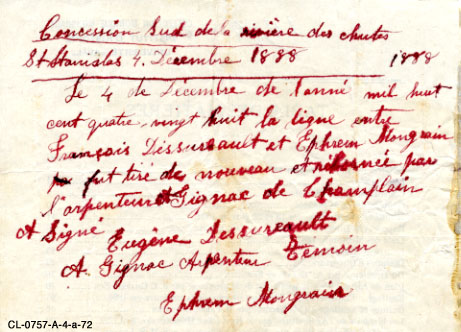 Concession Sud de la rivière des chutes
St Stanislas 4. Décembre 1888 1888
Le 4 de Décembre de l'anné mil huit
cent quatre-vingt huit la ligne entre
François Dessureault et Ephrem Mongrain
fut tiré de nouveau et rebornée par
l'arpenteur A Gignac de Champlain
A Signé
Eugène Dessureault
A. Gignac Arpenteur Témoin
Ephrem Mongrain
CL-0757-A-4-a-72